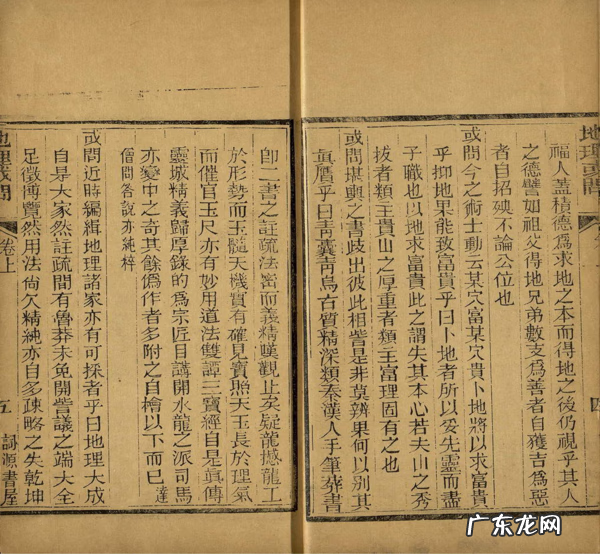 地理或問
四
福人蓋積德為求地之本而得地之後仍視乎其人
之德譬如祖父得地兄弟數支為善者自獲吉為惡
者自招殃不論公位也
或問今之術士動云某穴富某穴貴卜地將以求富貴
乎抑地果能致富貴乎曰卜地者所以妥先靈而盡
子職也以地求富貴此之謂失其本心若夫山之秀
拔者類主貴山之厚重者類主富理固有之也
或問堪輿之書歧出彼此相訾是非莫辨果何以別其
真贗乎曰青囊靑烏古質精深類秦漢人手筆葬書
卽二書之註疏法密而義精嘆觀止矣疑龍撼龍工
於形勢而玉髓天機實有確見寳照天玉長於理氣
而催官玉尺亦有妙用道法雙譚三寶經自是真傳
靈城精義歸厚錄的為宗匠目講開水龍之派司馬
亦變中之奇其餘偽作者多附之自檜以下而已達
僧問荅說亦純粹
或問近時編緝地理諸家亦有可採者乎曰地理大成
自是大家然註疏間有魯莽未免開訾議之端大全
足徵博覽然用法尙欠精純亦自多疎略之失乾坤
地理或問
卷上
五
詞源書屋
广东龙网